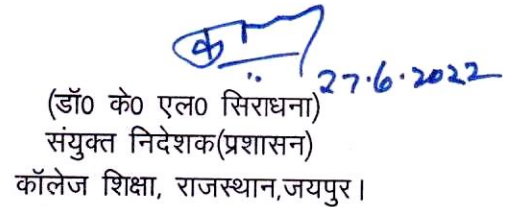 27.6.2022
(डॉ0 के0 एल0 सिराधना)
संयुक्त निदेशक(प्रशासन)
कॉलेज शिक्षा, राजस्थान,जयपुर।